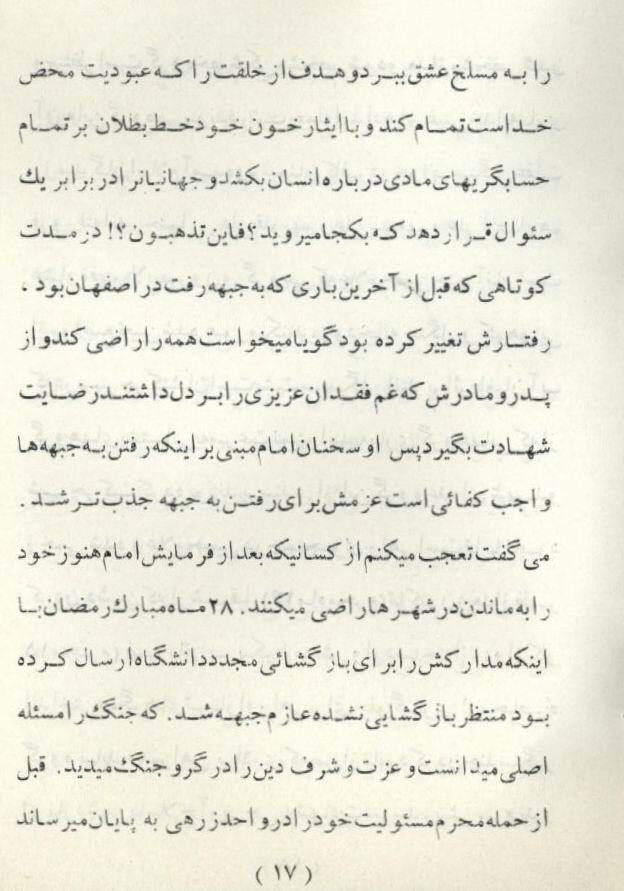 را به مسلخ عشق ببرد و هدف از خلقت را که عبودیت محض
خداست تمام کند و با ایثار خون خود خط بطلان بر تمام
حسابگریهای مادی درباره انسان بکشد و جهانیانرا در برابر یك
سئوال قرار دهد که بکجا میروید؟ فاین تذهبون؟! در مدت
کوتاهی که قبل از آخرین باری که به جبهه رفت در اصفهان بود ،
رفتارش تغییر کرده بود گویا میخواست همه را راضی کند و از
پدر و مادرش که غم فقدان عزیزی را بر دل داشتند رضایت
شهادت بگیرد پس او سخنان امام مبنی بر اینکه رفتن به جبهه‌ها
واجب کفائی است عزمش برای رفتن به جبهه جذب تر شد .
می گفت تعجب میکنم از کسانیکه بعد از فرمایش امام هنوز خود
را به ماندن در شهرها راضی میکنند. ۲۸ ماه مبارك رمضان با
اینکه مدارکش را برای بازگشائی مجدد دانشگاه ارسال کرده
بود منتظر بازگشایی نشده عازم جبهه شد. که جنگ را مسئله
اصلی میدانست و عزت و شرف دین را در گرو جنگ میدید. قبل
از حمله محرم مسئولیت خود را در واحد زرهی به پایان میرساند
(۱۷)